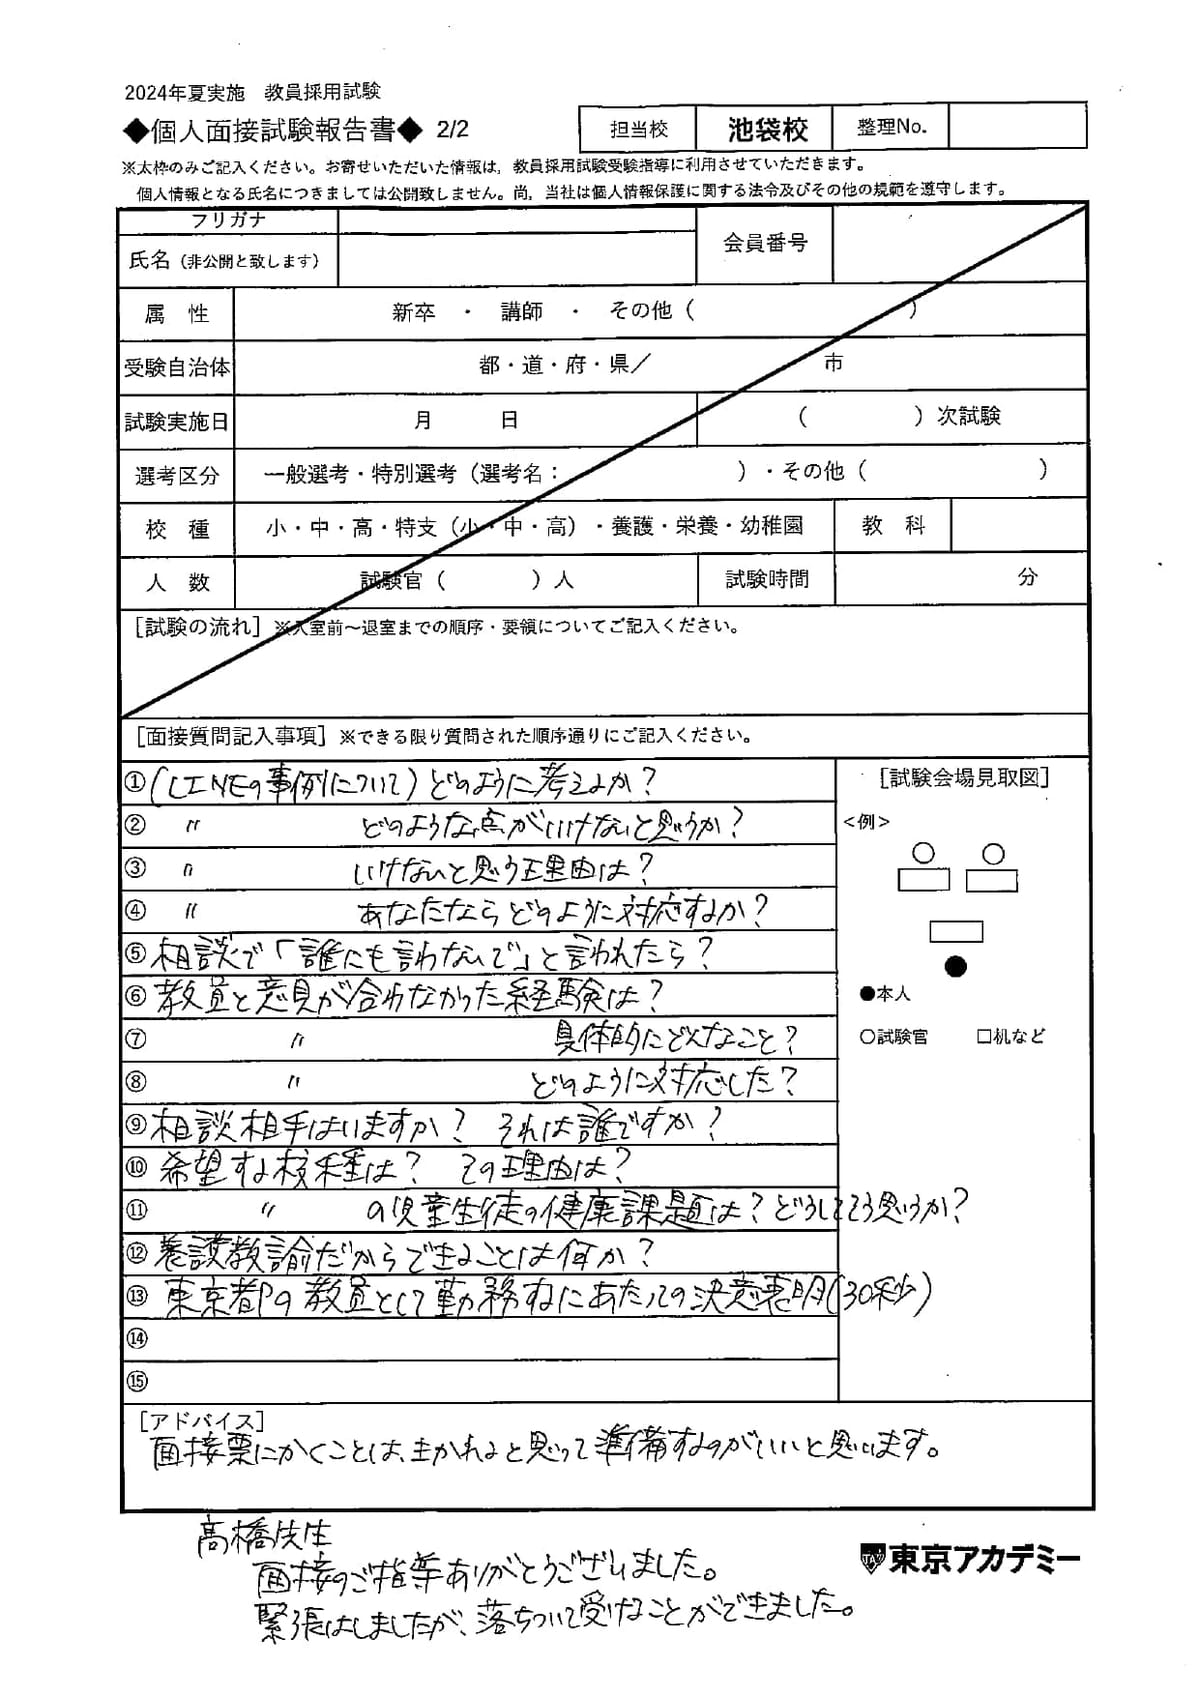 2024年夏実施　教員採用試験
◆個人面接試験報告書◆ 2/2
担当校 池袋校 整理No.
※太枠のみご記入ください。お寄せいただいた情報は，教員採用試験受験指導に利用させていただきます。
個人情報となる氏名につきましては公開致しません。尚，当社は個人情報保護に関する法令及びその他の規範を遵守します。
フリガナ
氏名（非公開と致します） 会員番号
属　性 新卒　・　講師　・　その他（　　　）
受験自治体 都・道・府・県／　　　市
試験実施日 月　　日 （　　　）次試験
選考区分 一般選考・特別選考（選考名：　　　）・その他（　　　）
校　種 小・中・高・特支（小・中・高）・養護・栄養・幼稚園 教　科
人　数 試験官（　　　）人 試験時間 分
［試験の流れ］※入室前～退室までの順序・要領についてご記入ください。
［面接質問記入事項］※できる限り質問された順序通りにご記入ください。
①（LINEの事例について）どのように考えるか？
② 〃 どのような点がいけないと思うか？
③ 〃 いけないと思う理由は？
④ 〃 あなたならどのように対応するか？
⑤ 相談で「誰にも言わないで」と言われたら？
⑥ 教員と意見が合わなかった経験は？
⑦ 〃 具体的にどんなこと？
⑧ 〃 どのように対応した？
⑨ 相談相手はいますか？　それは誰ですか？
⑩ 希望する校種は？　その理由は？
⑪ 〃 の児童生徒の健康課題は？どうしてそう思うか？
⑫ 養護教諭だからできることは何か？
⑬ 東京都の教員として勤務するにあたっての決意表明（30秒）
⑭
⑮
［試験会場見取図］
<例>
●本人
○試験官　□机など
［アドバイス］
面接票にかくことは、きかれると思って準備するのがいいと思います。
高橋先生
面接のご指導ありがとうございました。
緊張はしましたが、落ちついて受けることができました。
TAC 東京アカデミー